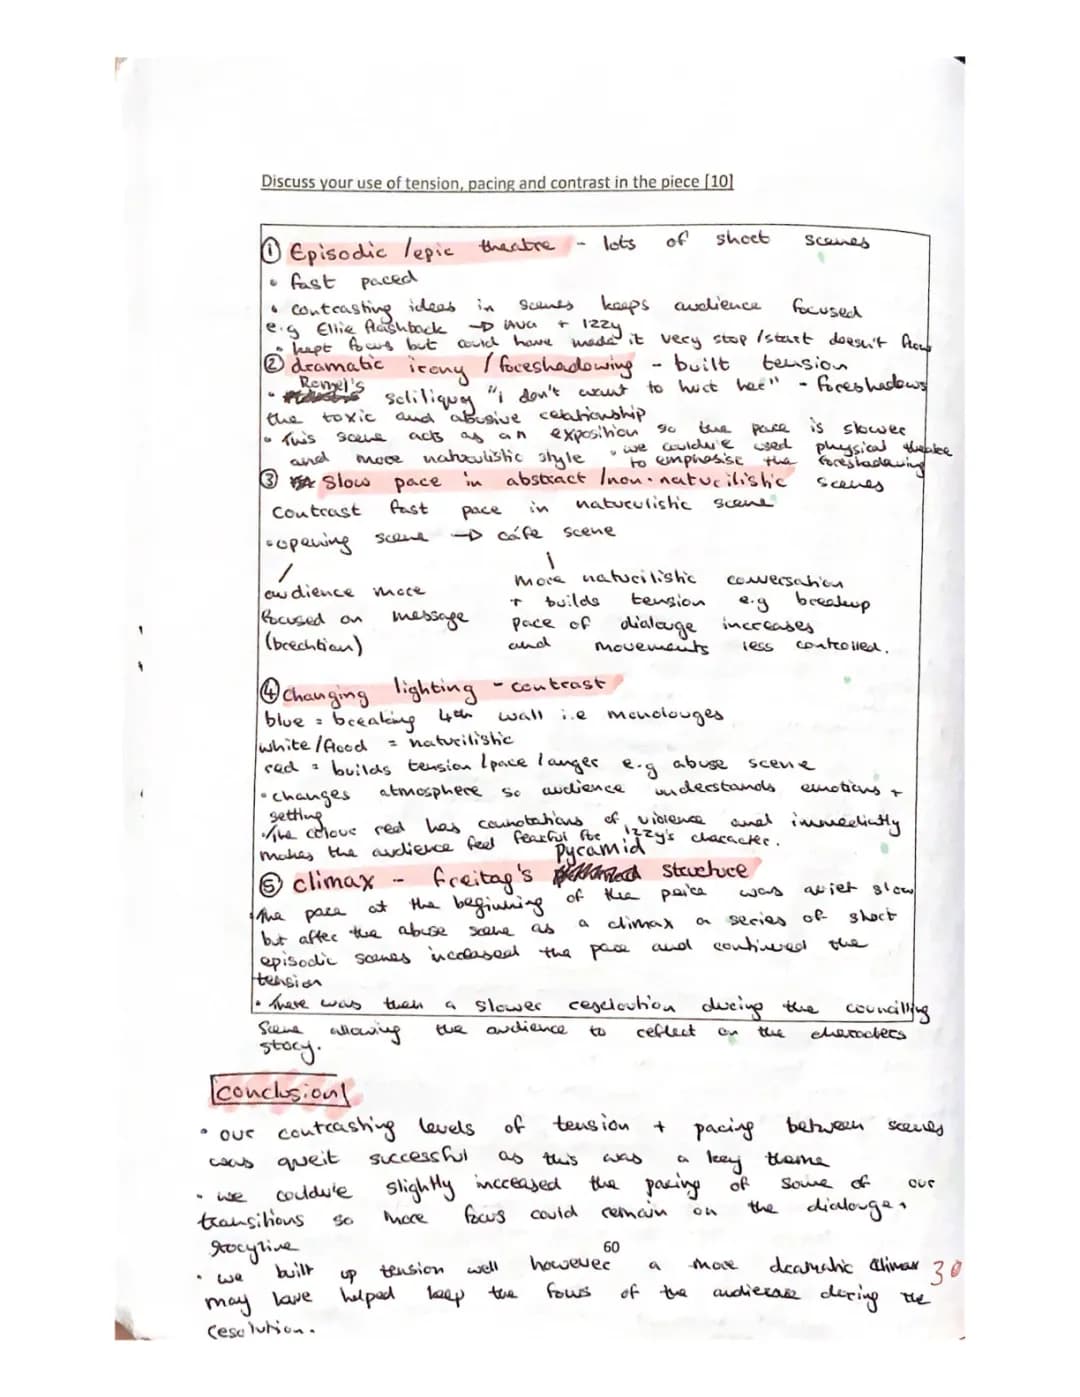 Discuss your use of tension, pacing and contrast in the piece [10]
① Episodic / epic theatre - lots of short scenes
• fast paced
• contrasting ideas in scenes keeps audience focused
e.g Ellie flashback → Ava + Izzy
• kept focus but could have made it very stop/start doesn't flow
② dramatic irony / foreshadowing - built tension
• Romel's soliliquy "i don't want to hurt her" - foreshadows
the toxic and abusive relationship
• This scene acts as an exposition so the pace is slower
and more naturulistic style
• we couldv'e used physical theatre
to emphasise the foreshadowing
③ Slow pace in abstract / non-naturilistic scenes
contrast fast pace in naturulistic scene
• opening scene → cáfe scene
audience more
focused on message
(brechtian)
more naturilistic conversation
+ builds tension e.g breakup
pace of dialouge increases
and movements less controlled.
④ Changing lighting - contrast
blue = breaking 4th wall i.e monolouges
white/flood = naturilistic
red = builds tension / pace / anger e.g abuse scene
• changes atmosphere so audience understands emotions +
setting
• The colour red has connotations of violence and immediatly
makes the audience feel fearful for Izzy's character.
⑤ climax - freitag's Pyramid structure
The pace at the beginning of the peice was quiet slow
but after the abuse scene as a climax a series of short
episodic scenes increased the pace and continued the
tension
• There was then a slower reseloution during the councilling
Scene allowing the audience to reflect on the characters
story.
conclusion
• our contrasting levels of tension + pacing between scenes
was queit successful as this was a key theme
• we couldv'e slightly increased the pacing of some of our
transitions so more focus could remain on the dialouge +
storyline
60
• we built up tension well however a more dramatic climax
30
may have helped keep the focus of the audience during the
resolution.